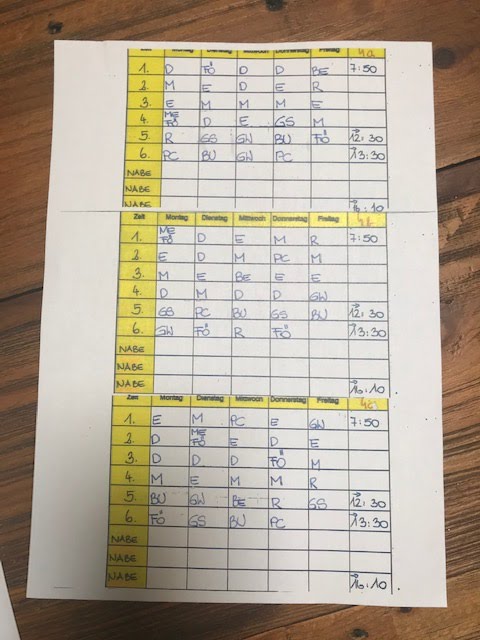 Zeit Montag Dienstag Mittwoch Donnerstag Freitag 4a
1. D FÖ D D BE 7:50
2. M E D E R
3. E M M M E
4. ME FÖ D E GS M
5. R GS GW BU FÖ → 12:30
6. PC BU GW PC → 13:30
NABE
NABE
NABE → 16:10
Zeit Montag Dienstag Mittwoch Donnerstag Freitag
1. ME FÖ D E M R 7:50
2. E D M PC M
3. M E BE E E
4. D M D D GW
5. GS PC BU GS BU → 12:30
6. GW FÖ R FÖ → 13:30
NABE
NABE
NABE → 16:10
Zeit Montag Dienstag Mittwoch Donnerstag Freitag
1. E M PC E GW 7:50
2. D ME FÖ E D E
3. D D D FÖ M
4. M E M M R
5. BU GW BE R GS → 12:30
6. FÖ GS BU PC → 13:30
NABE
NABE
NABE → 16:10